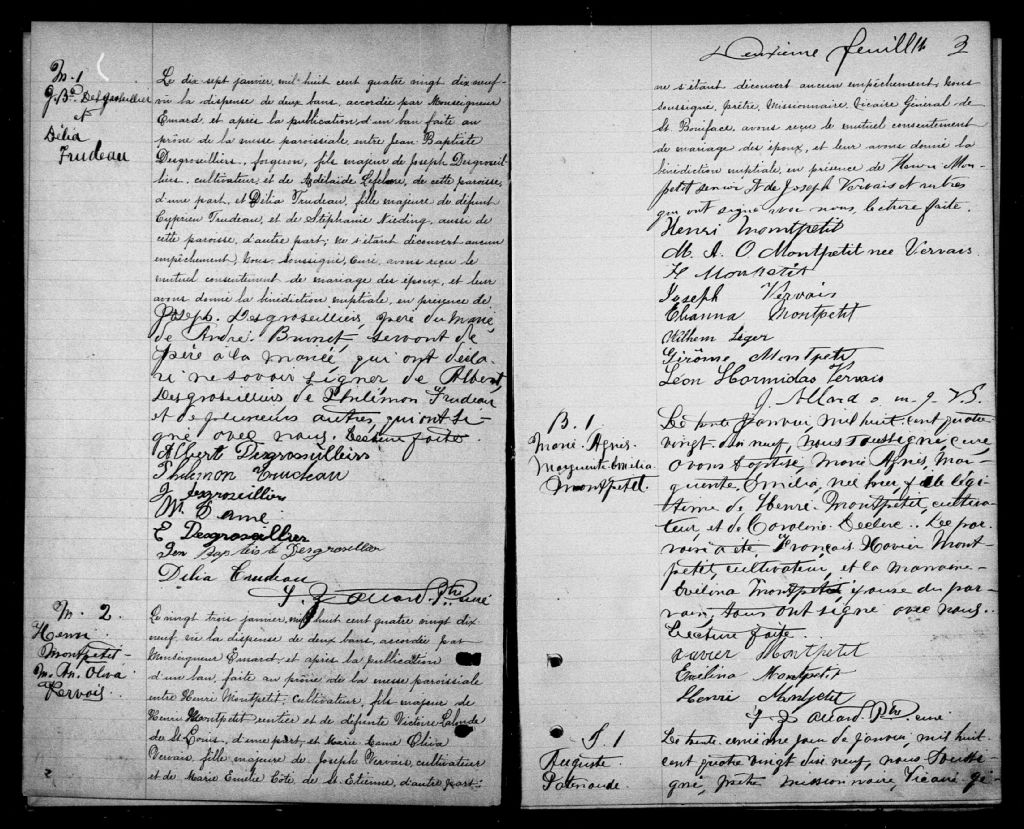 M. 1
J. Bte Desgroseillier
et
Délia
Trudeau
Le dix sept janvier, mil huit cent quatre vingt dix neuf,
vû la dispense de deux bans, accordée par Monseigneur
Emard, et après la publication d'un ban faite au
prône de la messe paroissiale, entre Jean Baptiste
Desgroseilliers, forgeron, fils majeur de Joseph Desgroseil-
liers, cultivateur, et de Adélaïde Lefebvre, de cette paroisse,
d'une part, et Délia Trudeau, fille majeure de défunt
Cyprien Trudeau, et de Stéphanie Nieding, aussi de
cette paroisse, d'autre part; ne s'étant découvert aucun
empêchement, Nous, soussigné, Curé, avons reçu le
mutuel consentement de mariage des époux, et leur
avons donné la bénédiction nuptiale, en présence de
Joseph Desgroseilliers, père du marié,
de André Brunet servant de
père à la mariée, qui ont décla-
ré ne savoir signer de Albert
Desgroseillers de Philimon Trudeau
et de plusieurs autres, qui ont si-
gné avec nous. Lecture faite.
Alberte Desgroseilliers
Philimon Trudeau
J Desgroseillier
M.
E Desgroseillier
Jen Baptiste Desgroseillier
Délia Trudeau
Ptre curé
M. 2
Henri
Montpetit
M. An. Oliva
Vervais
Le vingt trois janvier, mil huit cent quatre vingt dix
neuf, vû la dispense de deux bans, accordée par
Monseigneur Emard, et après la publication
d'un ban, faite au prône de la messe paroissiale
entre Henri Montpetit, cultivateur, fils majeur de
Henri Montpetit rentier et de défunte Victoire Lalonde
de St Louis, d'une part, et Marie Oliva
Vervais, fille majeure de Joseph Vervais, cultivateur
et de Marie Emélie Côté, de St. Etienne, d'autre part;
2
Deuxième feuillet 3
ne s'étant découvert aucun empêchement, Nous
soussigné, Prêtre, Missionnaire, Vicaire Général de
St. Boniface, avons reçu le mutuel consentement
de mariage des époux, et leur avons donné la
bénédiction nuptiale, en présence de Henri Mont-
petit senior & de Joseph Vervais et autres
qui ont signé avec nous, lecture faite.
Henri Montpetit
M. A. O Montpetit nee Vervais
H Montpetit
Joseph Vervais
Elianna Montpetit
Wilhem Leger
Girôme Montpetit
Léon Hormidas Vervais
J. Allard o. m. j. V. G.
B. 1
Marie Agnès
Marguerite Emélia
Montpetit
Le trente Janvier, mil huit cent quatre
vingt dix neuf, nous soussigné, curé
avons baptisé, Marie Agnès, Mar-
guerite, Emélia, née hier, fille légi-
time de Henri Montpetit, cultiva-
teur, et de Caroline Leclerc. Le par-
rain a été François Xavier Mont-
petit, cultivateur, et la marraine
Evelina Montpetit, épouse du par-
rain, tous ont signé avec nous.
Lecture faite.
Xavier Montpetit
Emélina Montpetit
Henri Montpetit
Ptre curé
S. 1
Auguste
Patenaude
Le trente unième jour de Janvier, mil huit
cent quatre vingt dix neuf, nous soussi-
gné, prêtre missionnaire, Vicaire gé-